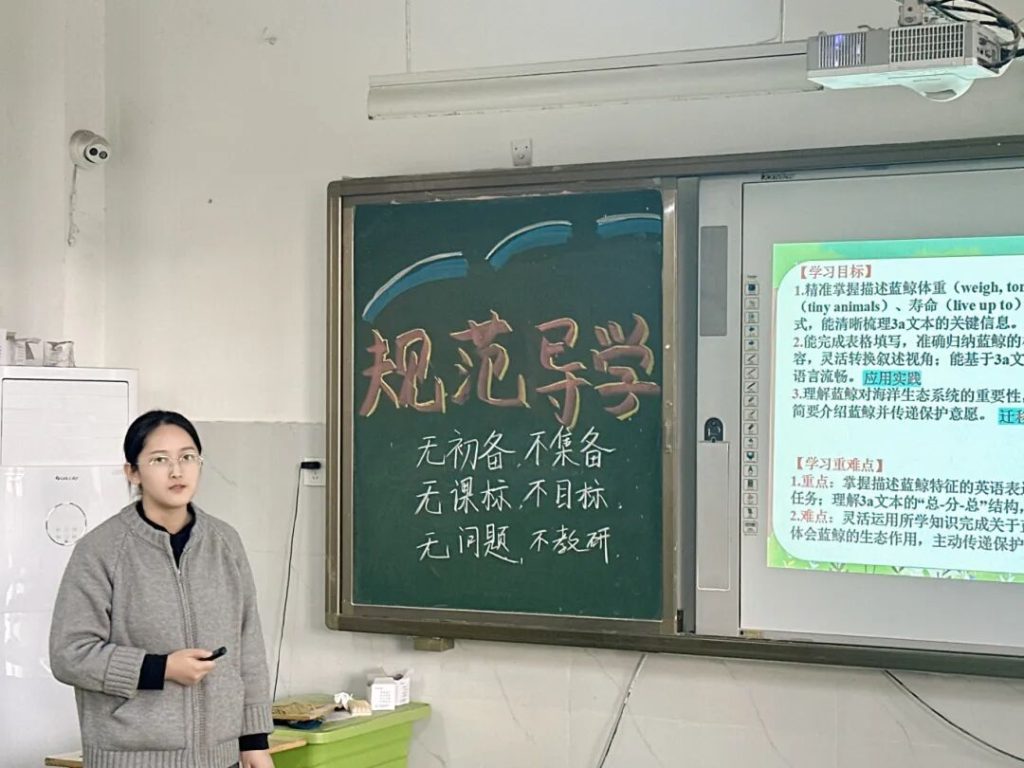 规范导学
无初备,不集备
无课标,不目标,
无问题,不教研.
【学习目标】
1.精准掌握描述蓝鲸体重（weigh, ton
（tiny animals）、寿命（live up to）
式，能清晰梳理3a文本的关键信息。
2.能完成表格填写，准确归纳蓝鲸的
容，灵活转换叙述视角；能基于3a文
语言流畗。 应用实践
3.理解蓝鲸对海洋生态系统的重要性，
简要介绍蓝鲸并传递保护意愿。 迁移
【学习重难点】
1.重点：掌握描述蓝鲸特征的英语表
任务；理解3a文本的“总-分-总”结构，
2.难点：灵活运用所学知识完成关于
体会蓝鲸的生态作用，主动传递保护